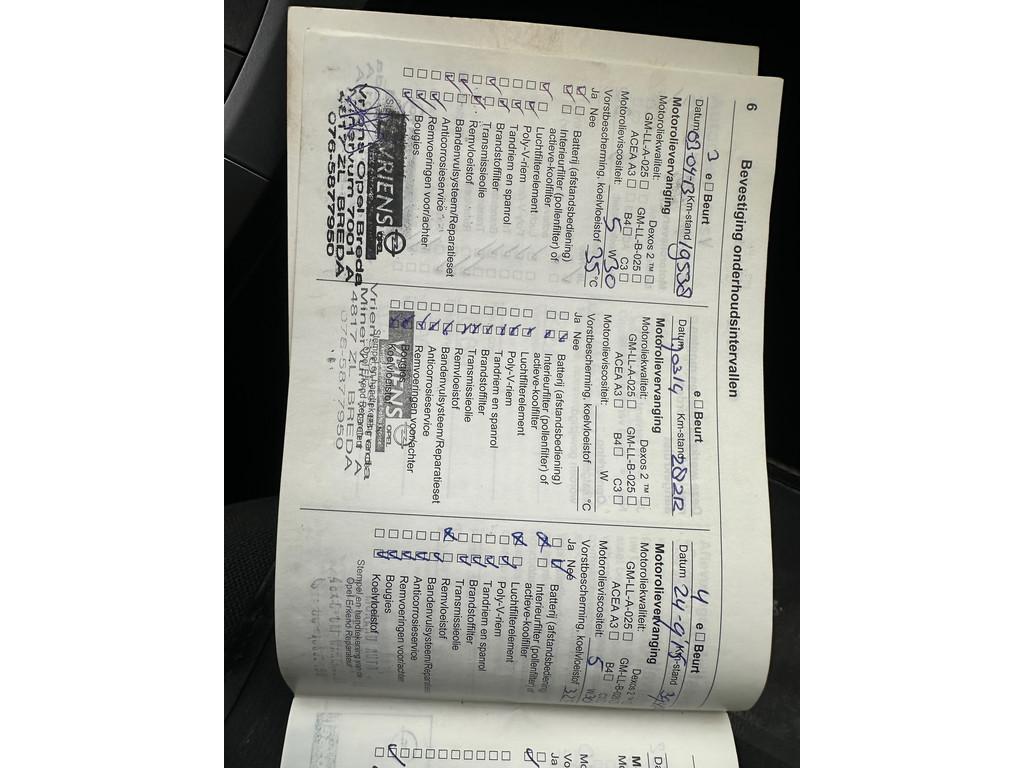 6
Bevestiging onderhoudsintervallen
3 e Beurt
Datum 09-04-13 Km-stand 19538
Motorolievervanging
Motoroliekwaliteit: Dexos 2 ™
GM-LL-A-025 GM-LL-B-025
ACEA A3 B4 C3
Motorolieviscositeit: 5 W30
Vorstbescherming, koelvloeistof 35 °C
Ja Nee
Batterij (afstandsbediening)
Interieurfilter (pollenfilter) of
actieve-koolfilter
Luchtfilterelement
Poly-V-riem
Tandriem en spanrol
Brandstoffilter
Transmissieolie
Remvloeistof
Bandenvulsysteem/Reparatieset
Anticorrosieservice
Remvoeringen voor/achter
Bougies
VRIENS OPEL
Vriens Opel Breda
Minervum 7001 A
4817 ZL BREDA
076-5877950
e Beurt
Datum Km-stand 28212
Motorolievervanging
Motoroliekwaliteit: Dexos 2 ™
GM-LL-A-025 GM-LL-B-025
ACEA A3 B4 C3
Motorolieviscositeit: W
Vorstbescherming, koelvloeistof °C
Ja Nee
Batterij (afstandsbediening)
Interieurfilter (pollenfilter) of
actieve-koolfilter
Luchtfilterelement
Poly-V-riem
Tandriem en spanrol
Brandstoffilter
Transmissieolie
Remvloeistof
Bandenvulsysteem/Reparatieset
Anticorrosieservice
Remvoeringen voor/achter
Bougies
Koelvloeistof
Stempel en handtekening
OPEL
4817 ZL BREDA
076-5877950
4 e Beurt
Datum Km-stand
Motorolievervanging
Motoroliekwaliteit: Dexos 2
GM-LL-A-025 GM-LL-B-
ACEA A3 B4
Motorolieviscositeit: 5 W30
Vorstbescherming, koelvloeistof
Ja Nee
Batterij (afstandsbediening)
Interieurfilter (pollenfilter) o
actieve-koolfilter
Luchtfilterelement
Poly-V-riem
Tandriem en spanrol
Brandstoffilter
Transmissieolie
Remvloeistof
Bandenvulsysteem/Reparatieset
Anticorrosieservice
Remvoeringen voor/achter
Bougies
Koelvloeistof
Stempel en handtekening van de
Opel Erkend Reparateur